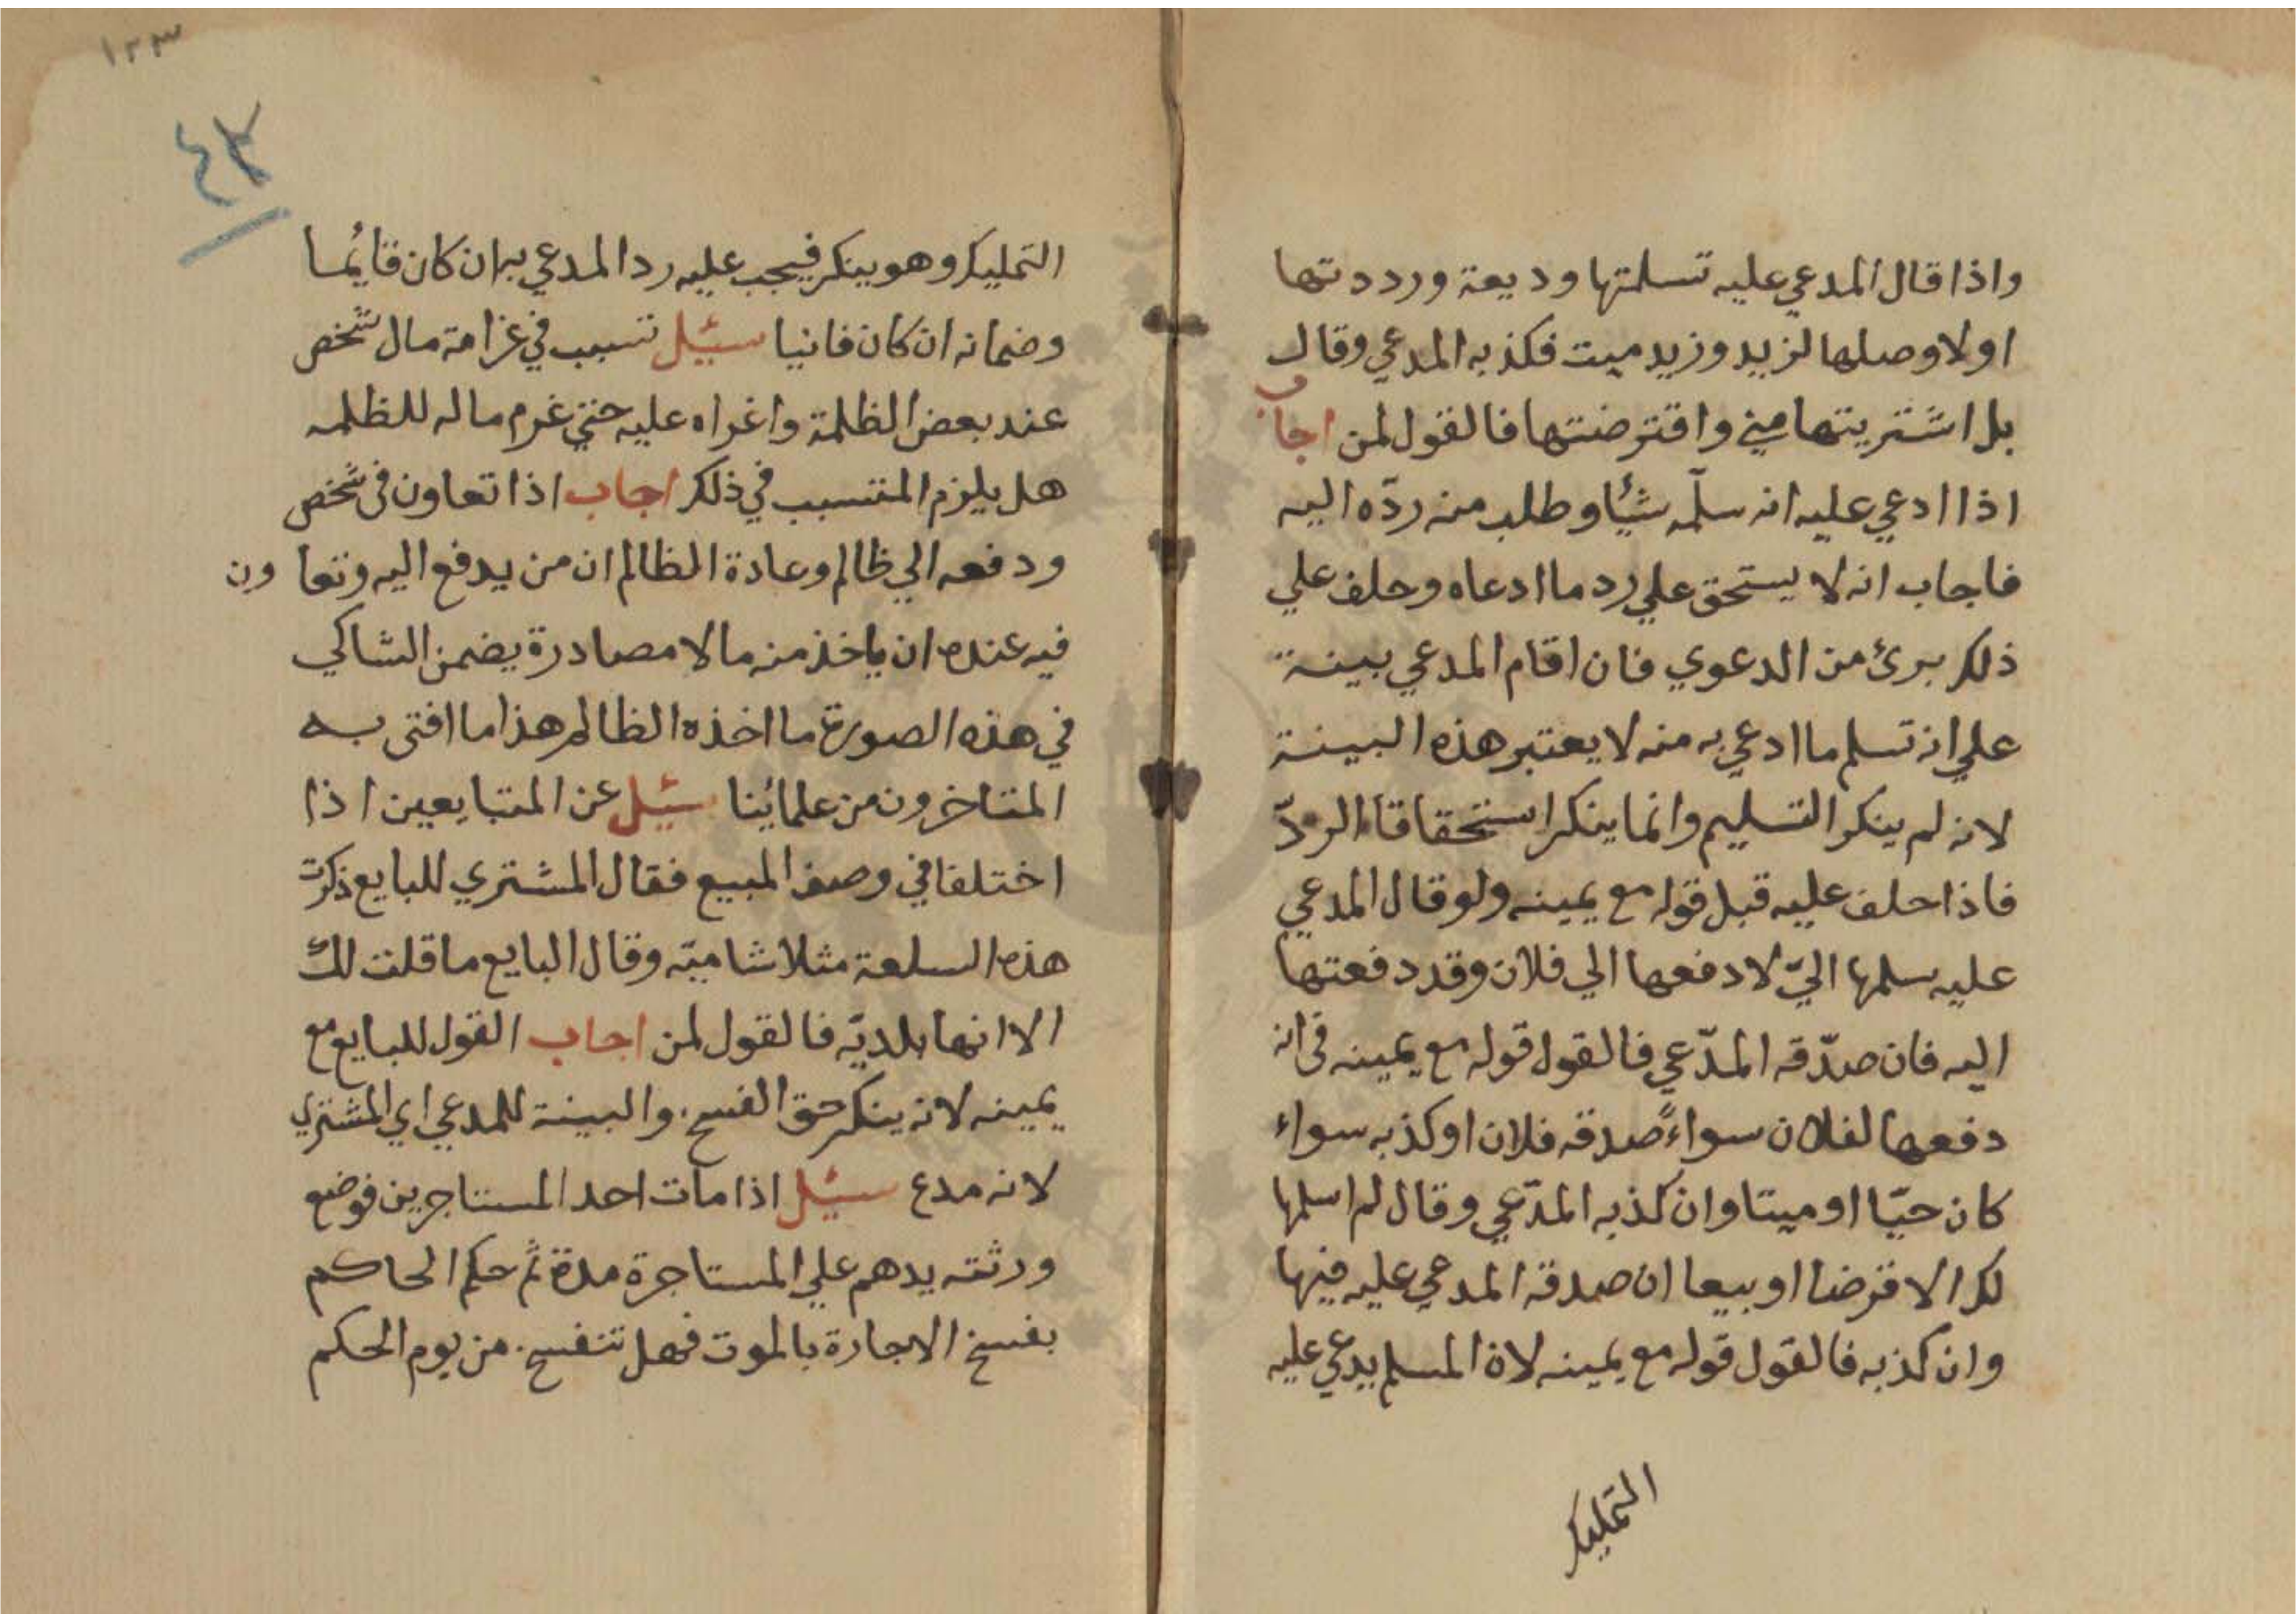 واذا قال المدعي عليه تسلمتها وديعة ورددتها
اولا وصلها لزيد وزيد ميت فكذبه المدعي وقال
بل اشتريتها مني واقترضتها فالقول لمن اجاب
اذا ادعي عليه انه سلّمه شيأ وطلب منه ردّه اليه
فاجاب انه لا يستحق علي رد ما ادعاه وحلف علي
ذلك برئ من الدعوي فان اقام المدعي بينة
علي انه تسلم ما ادعي به منه لا يعتبر هذه البينة
لانه لم ينكر التسليم وانما ينكر استحقاقا الردّ
فاذا حلف عليه قبل قوله مع يمينه ولو قال المدعي
عليه سلمها اليّ لادفعها الي فلان وقد دفعتها
اليه فان صدّقه المدّعي فالقول قوله مع يمينه في انه
دفعها لفلان سواءً صدقه فلان او كذبه سواء
كان حيّا او ميتا وان كذبه المدّعي وقال لم اسلمها
لك الا قرضا او بيعا ان صدقه المدعي عليه فيها
وان كذبه فالقول قوله مع يمينه لان المسلم يدعي عليه
التمليك
١٢٣
٤٢
التمليك وهو ينكر فيجب عليه رد المدعي به ان كان قايُما
وضمانه ان كان فانيا سئيل تسبب في غرامة مال شخص
عند بعض الظلمة واغراه عليه حتي غرم ماله للظلمه
هل يلزم المتسبب في ذلك اجاب اذا تعاون في شخص
ودفعه الي ظالم وعادة الظالم ان من يدفع اليه وتعاون
فيه عنده ان ياخذ منه مالا مصادرة يضمن الشاكي
في هذه الصورة ما اخذه الظالم هذا ما افتى به
المتاخرون من علمائنا سئيل عن المتبايعين اذا
اختلفا في وصف المبيع فقال المشتري للبايع ذكرت
هذه السلعة مثلا شاميّه وقال البايع ما قلت لك
الا انها بلديّه فالقول لمن اجاب القول للبايع مع
يمينه لانه ينكر حق الفسخ والبينة للمدعي اي المشتري
لانه مدع سئيل اذا مات احد المستاجرين فوضع
ورثته يدهم علي المستاجرة مدة ثم حكم الحاكم
بفسخ الاجارة بالموت فهل تنفسخ من يوم الحكم